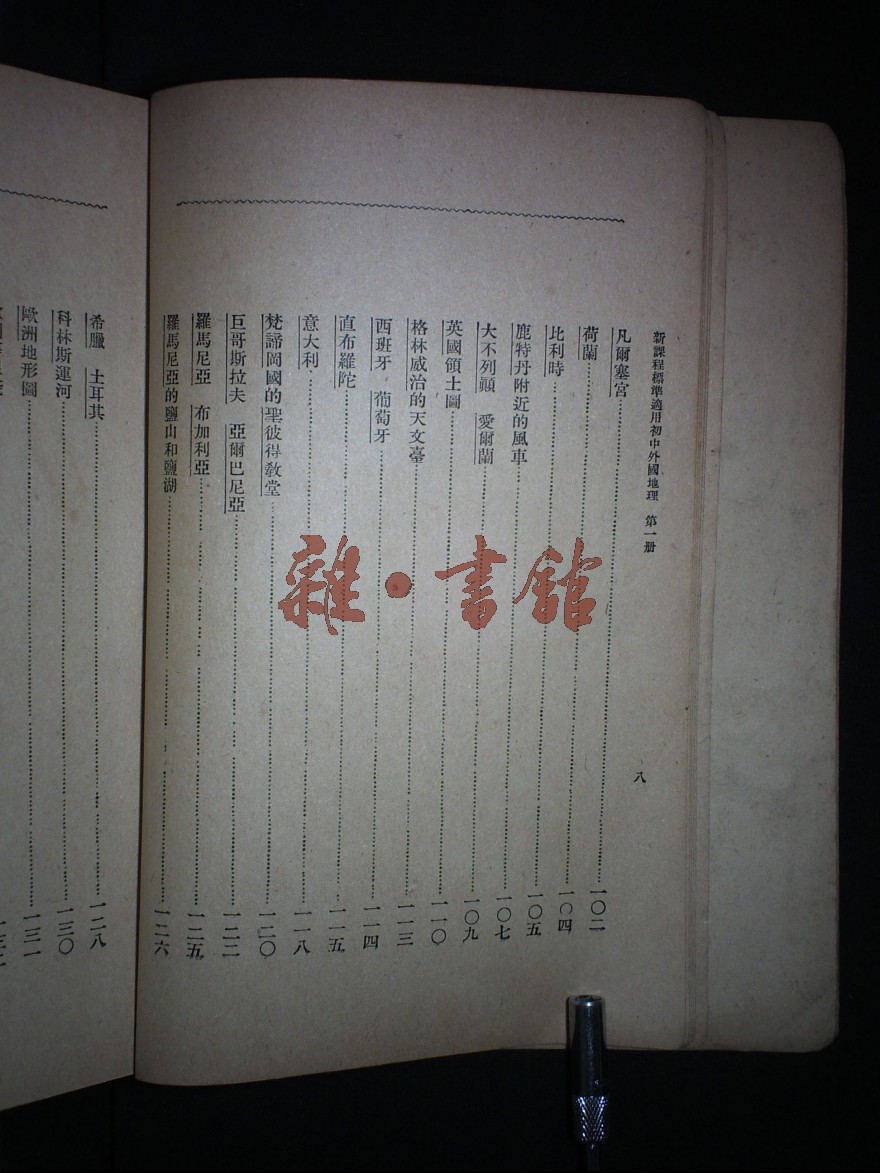 新課程標準適用初中外國地理 第一册
八
凡爾塞宮……一〇二
荷蘭……一〇四
比利時……一〇五
鹿特丹附近的風車……一〇七
大不列顛 愛爾蘭……一〇九
英國領土圖……一一〇
格林威治的天文臺……一一三
西班牙 葡萄牙……一一四
直布羅陀……一一五
意大利……一一八
梵諦岡國的聖彼得敎堂……一二〇
巨哥斯拉夫 亞爾巴尼亞……一二二
羅馬尼亞 布加利亞……一二五
羅馬尼亞的鹽山和鹽湖……一二六
希臘 土耳其……一二八
科林斯運河……一三〇
歐洲地形圖……一三一
雜·書館